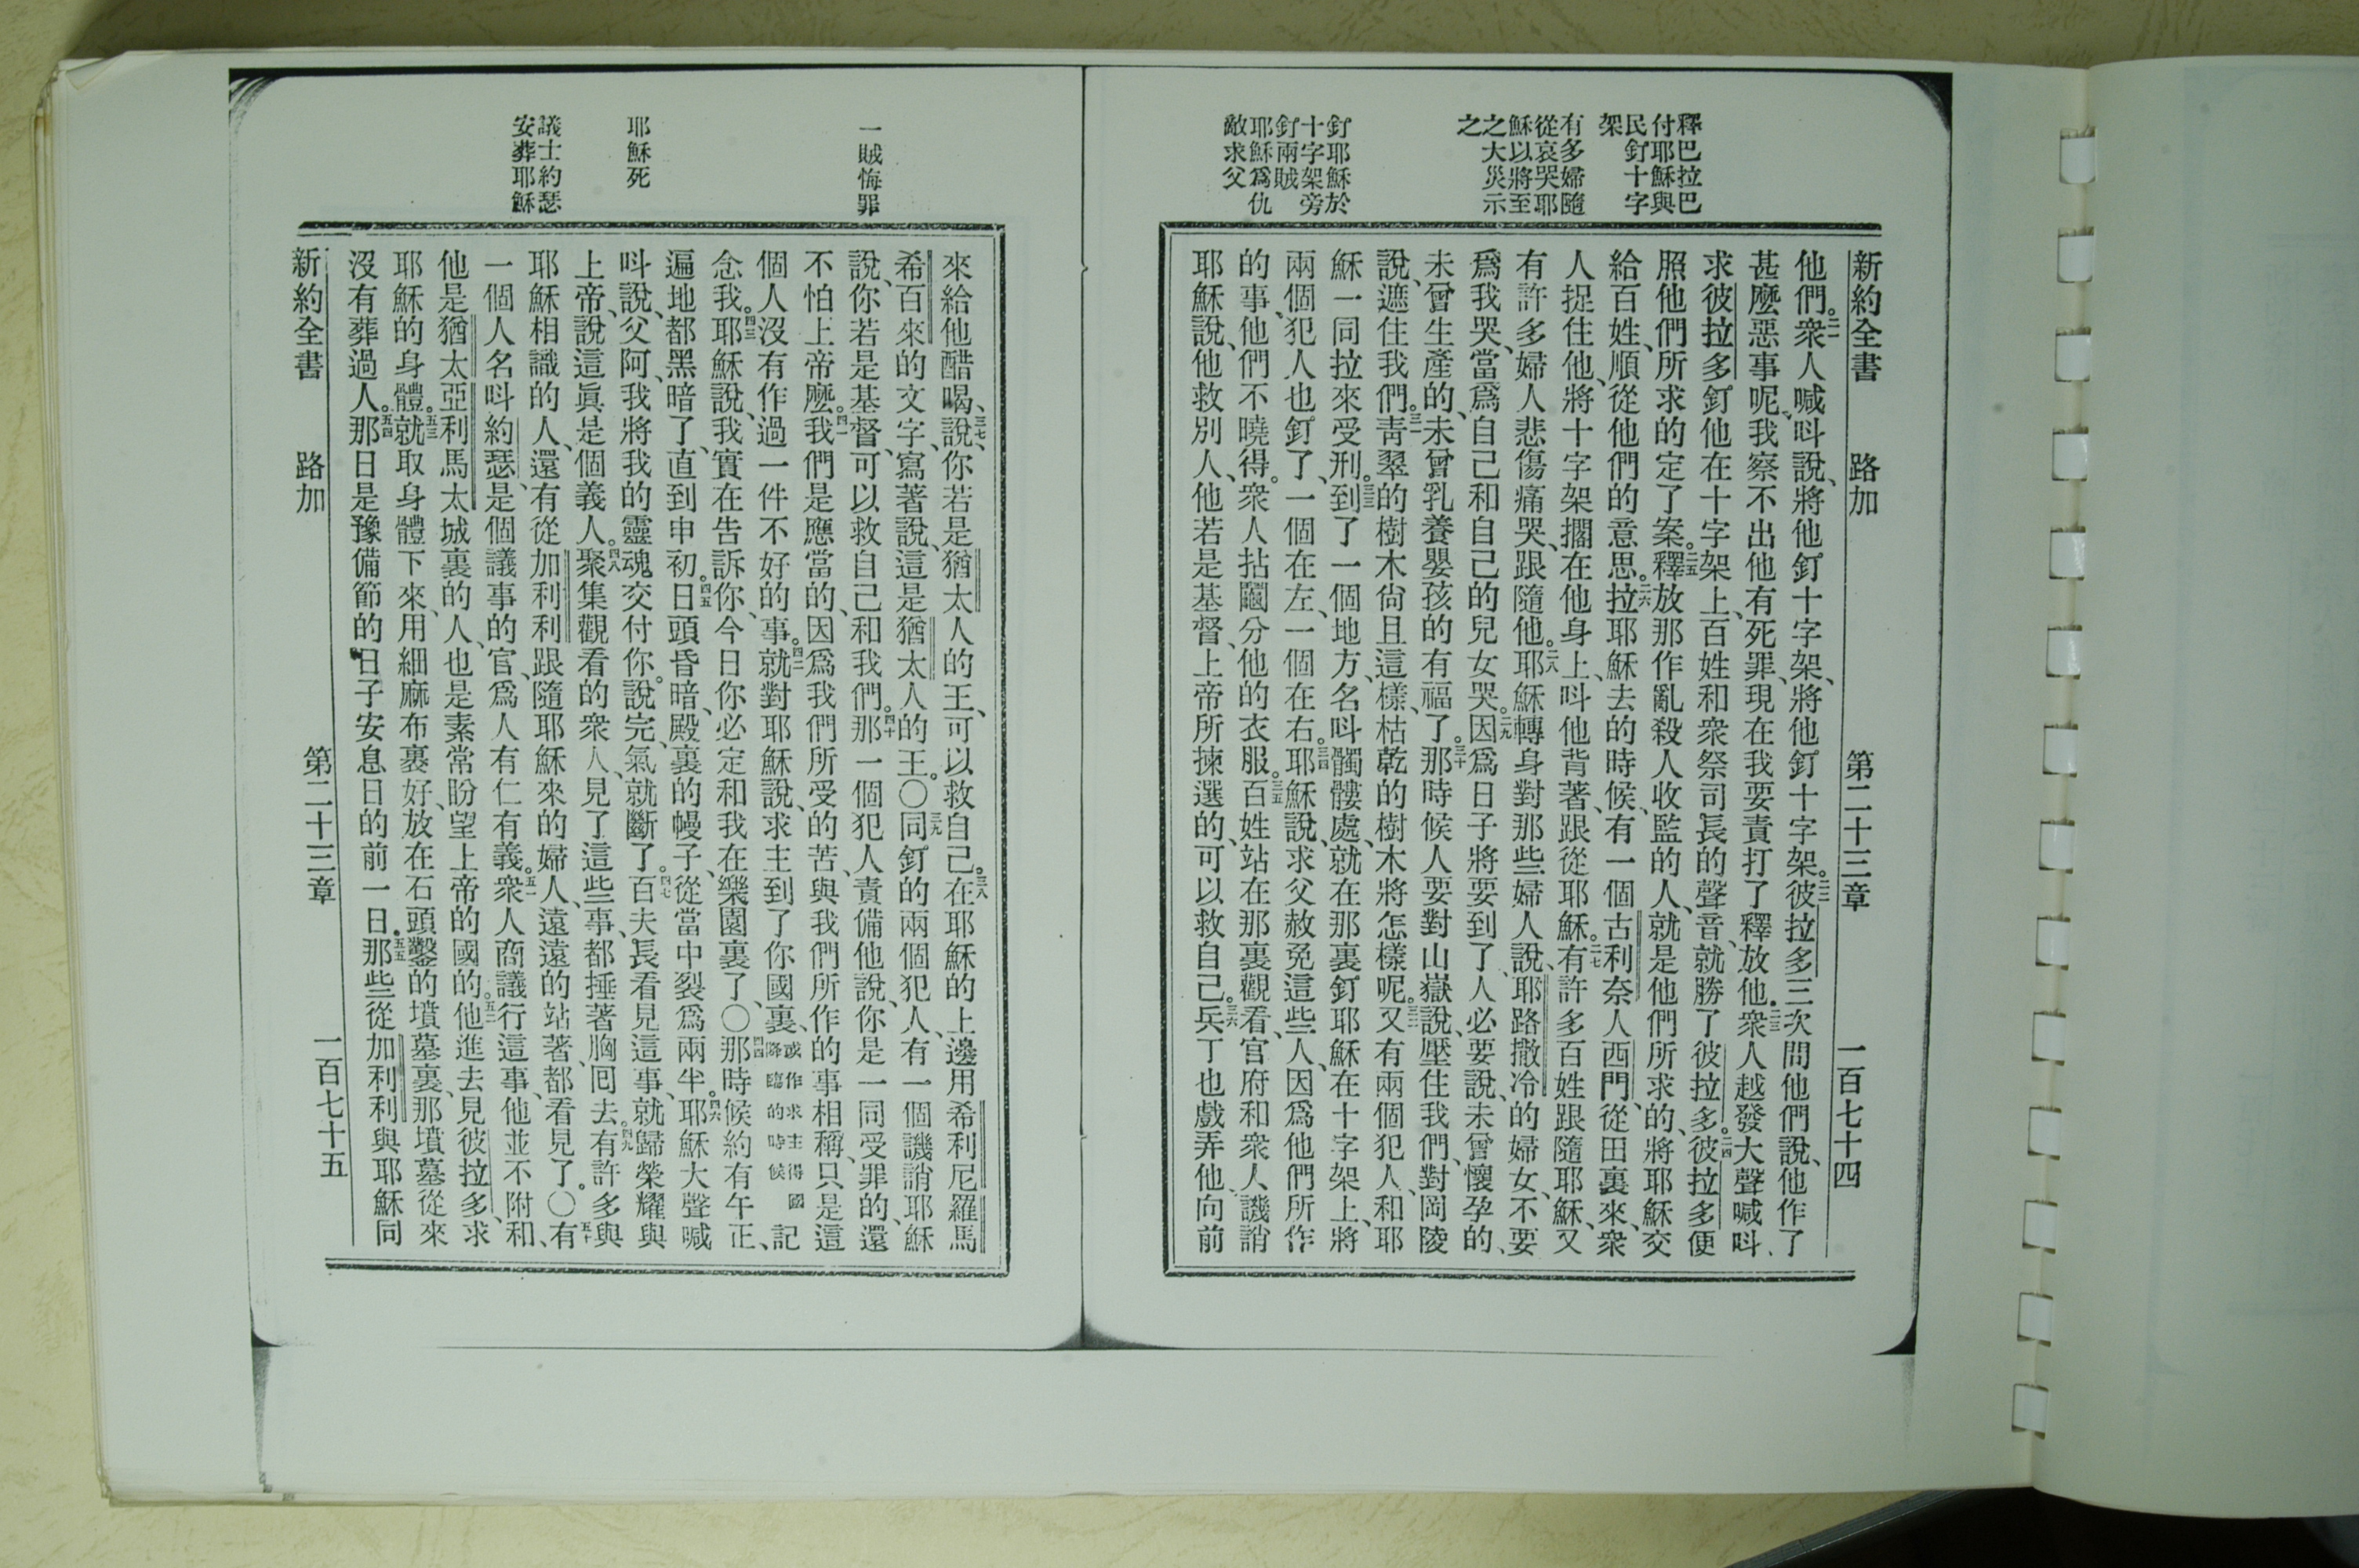 釋巴拉巴
付耶穌與
民釘十字
架
有多婦隨
從哀哭耶
穌以將至
之大災示
之
釘耶穌於
十字架旁
釘兩賊
耶穌爲仇
敵求父
新約全書 路加 第二十三章 一百七十四
他們。二一衆人喊呌說、將他釘十字架、將他釘十字架。二二彼拉多三次問他們說、他作了
甚麼惡事呢、我察不出他有死罪、現在我要責打了釋放他。二三衆人越發大聲喊呌、
求彼拉多釘他在十字架上、百姓和衆祭司長的聲音、就勝了彼拉多。二四彼拉多便
照他們所求的定了案。二五釋放那作亂殺人收監的人、就是他們所求的、將耶穌交
給百姓、順從他們的意思。二六拉耶穌去的時候、有一個古利奈人西門、從田裏來、衆
人捉住他、將十字架擱在他身上、呌他背著、跟從耶穌。二七有許多百姓跟隨耶穌、又
有許多婦人悲傷痛哭、跟隨他。二八耶穌轉身對那些婦人說、耶路撒冷的婦女、不要
爲我哭、當爲自己和自己的兒女哭。二九因爲日子將要到了、人必要說、未曾懷孕的、
未曾生產的、未曾乳養嬰孩的有福了。三十那時候人要對山嶽說、壓住我們、對岡陵
說、遮住我們。三一靑翠的樹木尙且這樣、枯乾的樹木將怎樣呢。三二又有兩個犯人、和耶
穌一同拉來受刑。三三到了一個地方、名呌髑髏處、就在那裏釘耶穌在十字架上、將
兩個犯人也釘了、一個在左、一個在右。三四耶穌說、求父赦免這些人、因爲他們所作
的事、他們不曉得。衆人拈鬮分他的衣服。三五百姓站在那裏觀看、官府和衆人譏誚
耶穌說、他救別人、他若是基督、上帝所揀選的、可以救自己。三六兵丁也戲弄他、向前
一賊悔罪
耶穌死
議士約瑟
安葬耶穌
來給他醋喝、三七說、你若是猶太人的王、可以救自己。三八在耶穌的上邊用希利尼羅馬
希百來的文字、寫著說、這是猶太人的王。〇三九同釘的兩個犯人、有一個譏誚耶穌
說、你若是基督、可以救自己和我們。四十那一個犯人責備他說、你是一同受罪的、還
不怕上帝麼。四一我們是應當的、因爲我們所受的苦、與我們所作的事相稱、只是這
個人沒有作過一件不好的事。四二就對耶穌說、求主到了你國裏、或作求主得國降臨的時候記
念我。四三耶穌說、我實在告訴你、今日你必定和我在樂園裏了、〇四四那時候約有午正、
遍地都黑暗了、直到申初。四五日頭昏暗、殿裏的幔子、從當中裂爲兩半。四六耶穌大聲喊
呌說、父阿、我將我的靈魂交付你。說完、氣就斷了。四七百夫長看見這事、就歸榮耀與
上帝、說這眞是個義人。四八聚集觀看的衆人、見了這些事、都捶著胸囘去。四九有許多與
耶穌相識的人、還有從加利利跟隨耶穌來的婦人、遠遠的站著、都看見了。〇五十有
一個人名呌約瑟、是個議事的官、爲人有仁有義。五一衆人商議行這事、他並不附和、
他是猶太亞利馬太城裏的人、也是素常盼望上帝的國的。五二他進去見彼拉多、求
耶穌的身體。五三就取身體下來、用細麻布裹好、放在石頭鑿的墳墓裏、那墳墓從來
沒有葬過人。五四那日是豫備節的日子安息日的前一日。五五那些從加利利與耶穌同
新約全書 路加 第二十三章 一百七十五